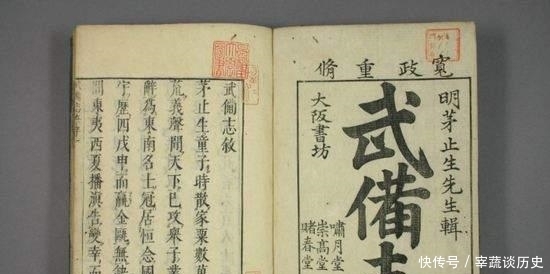 寬政重脩
明茅止生先生輯
武備志
大阪書坊
嘯月堂
崇高堂
睹春堂
武備志敘
茅止生童子時散家粟數萬
荒義聲聞天下已攻舉子業
辭為東南名士冠居恒念國
宇歷四戊申而 金甌無
聞東夷西夏播滇告變幸而
快传号 / 宰蔬谈历史